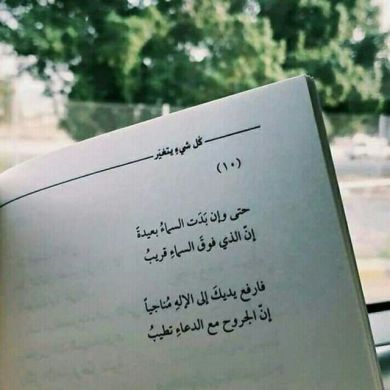 كل شيءٍ يتغيّر
(١٠)
حتى وإن بَدَت السماءُ بعيدةً
إنّ الذي فوقَ السماءِ قريبُ
فارفع يديكَ إلى الإلهِ مُناجياً
إنّ الجروح مع الدعاءِ تطيبُ